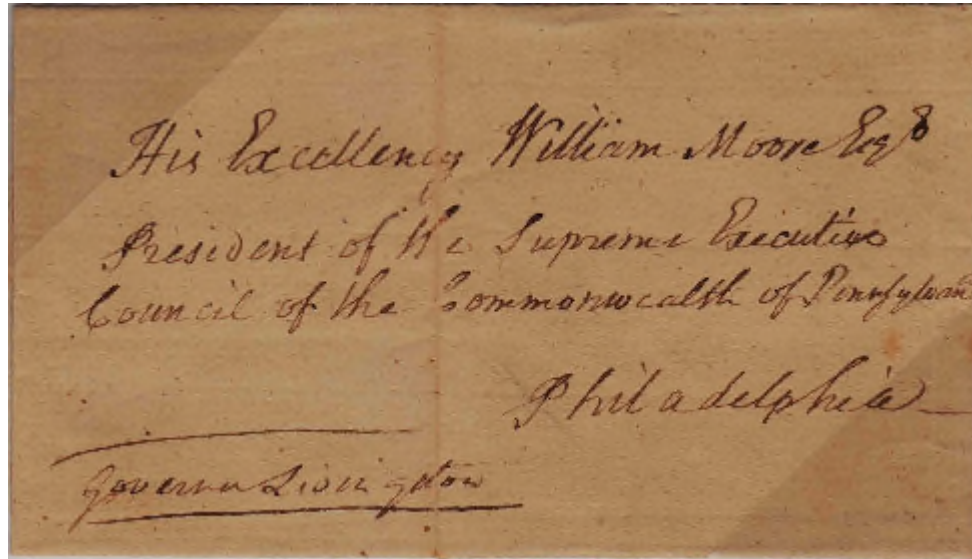 His Excellency William Moore Esqr
President of the Supreme Executive
Council of the Commonwealth of Pennsylvan
Philadelphia
Governor Livingston